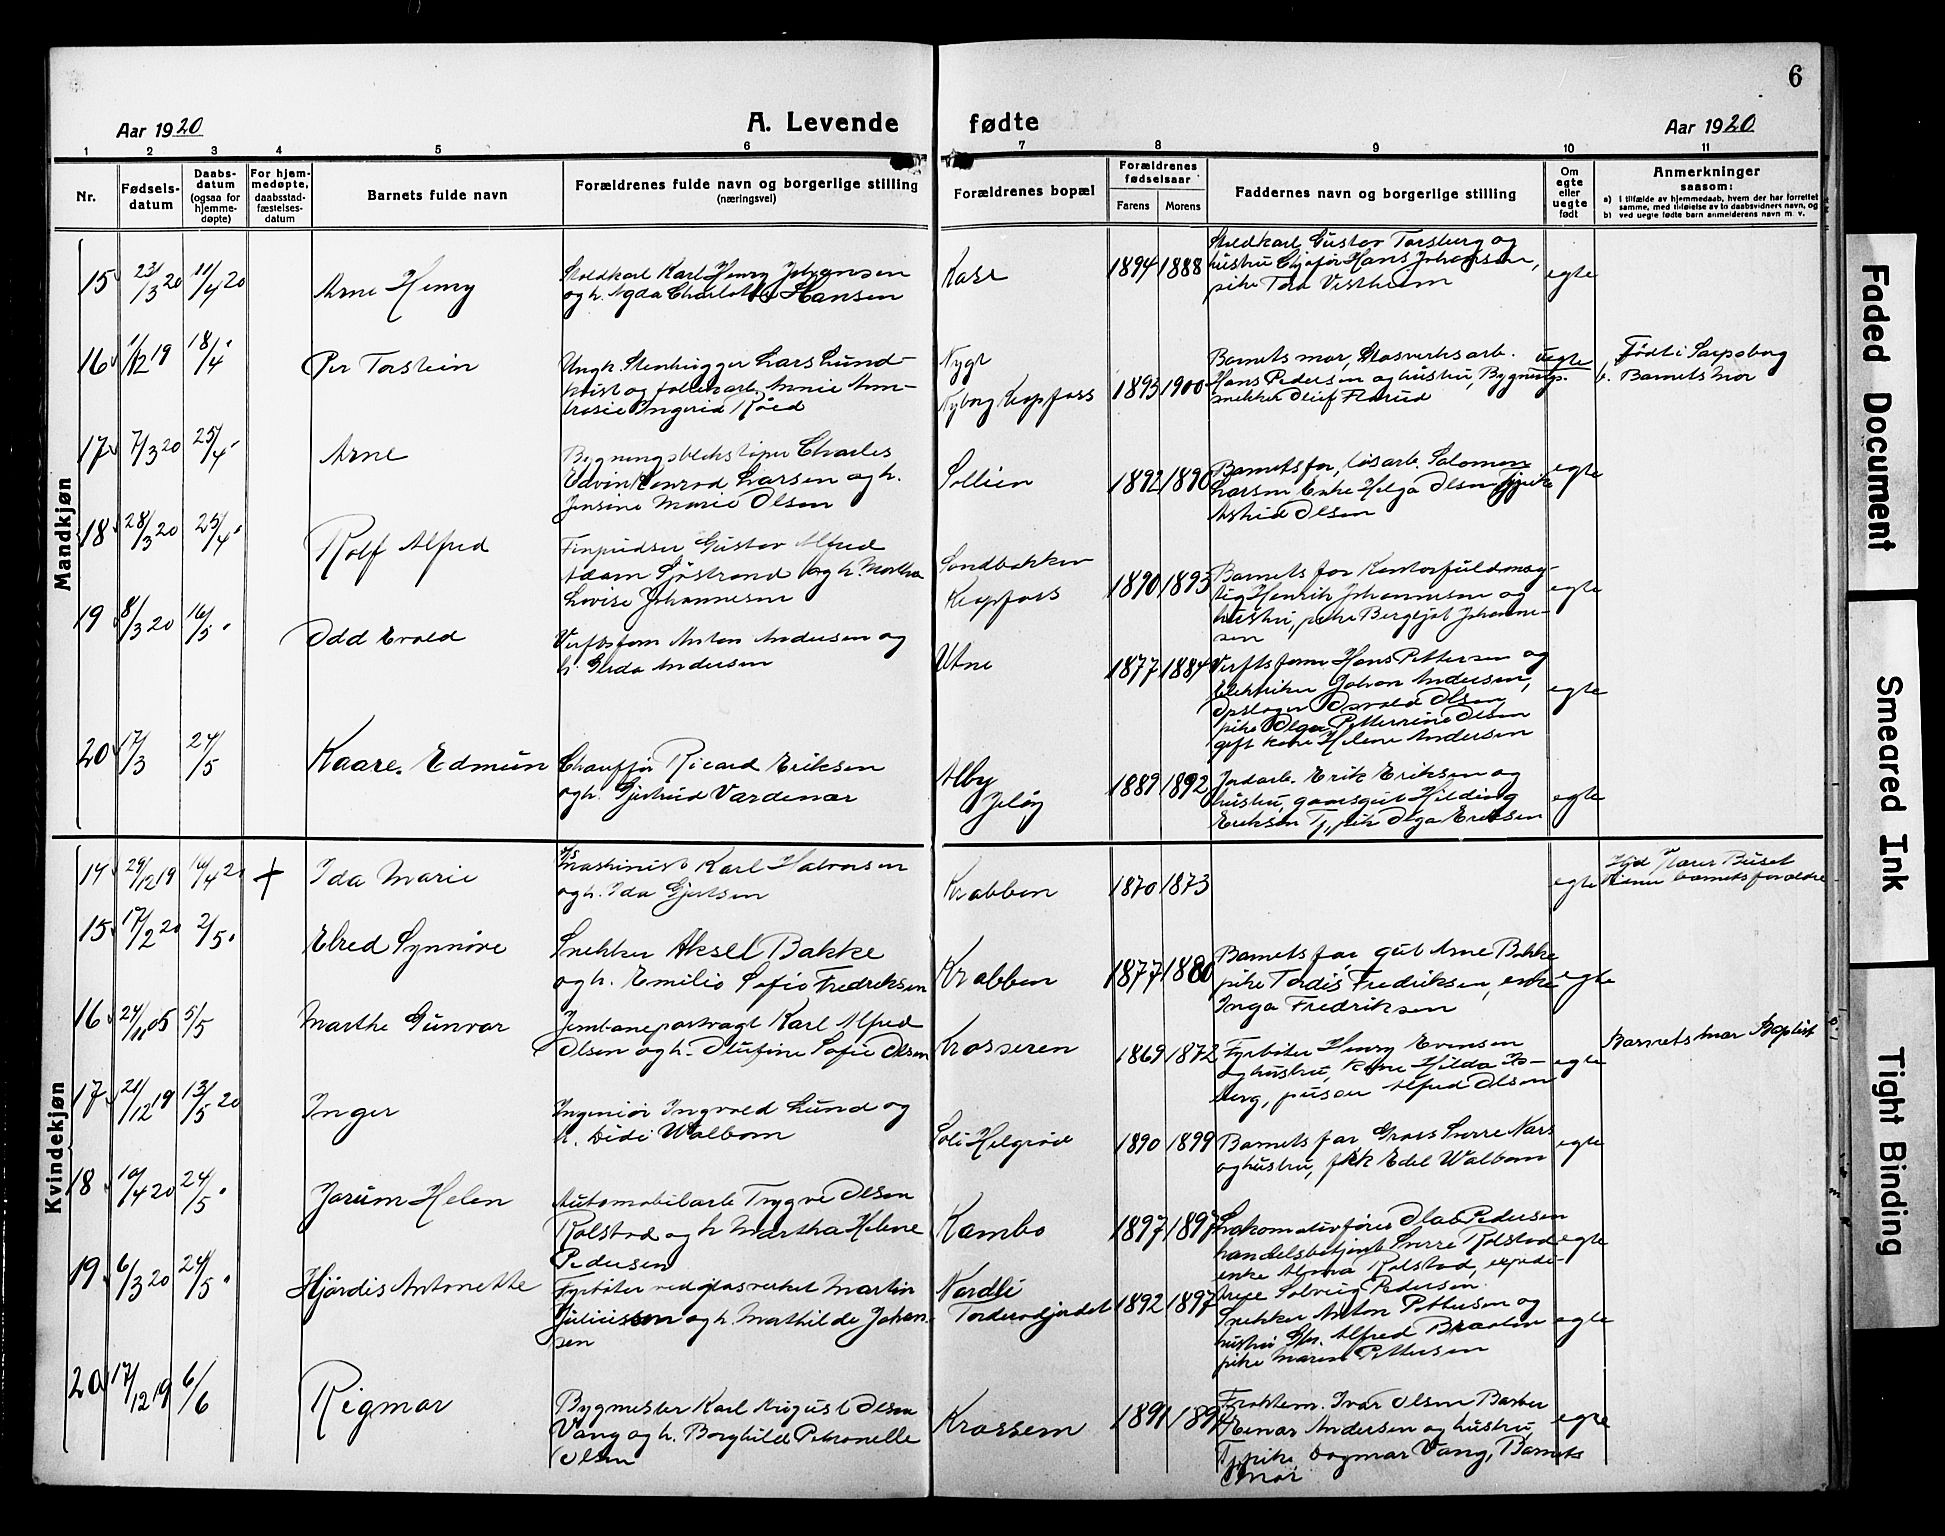 6
Aar 1920
A. Levende fødte
Aar 1920
1 2 3 4 5 6 7 8 9 10 11
Nr.
Fødsels-
datum
Daabs-
datum
(ogsaa for
hjemme-
døpte)
For hjem-
medøpte,
daabsstad-
fæstelses-
datum
Barnets fulde navn
Forældrenes fulde navn og borgerlige stilling
(næringsvei)
Forældrenes bopæl
Forældrenes
fødselsaar
Farens
Morens
Faddernes navn og borgerlige stilling
Om
egte
eller
uegte
født
Anmerkninger
saasom:
a) i tilfælde av hjemmedaab, hvem der har forrettet
samme, med tilføielse av to daabsvidners navn, og
b) ved uegte fødte barn anmelderens navn m. v.
Mandkjøn
15 23/3 20 11/4 20
Arne Henry
Karl Henry Johansen
og h. Agda Charlotte Hansen
1894 1888
Gustav Torsberg og
hustru Hans Johansen,
pike Tora Vestheim
egte
16 1/12 19 18/4
Per Torstein
Ungk. Stenhugger Lars Lund-
kvist og
Ingerid Röed
Nygt
Nyborg Kapfoss
1895 1900
Barnets mor, Glasverksarb.
Hans Pedersen og hustru, Bygnings-
snekker
uegte
Født i Sarpsborg
b. Barnets mor
17 7/3 20 25/4
Arne
Charles
Edvin Konrad Larsen og h.
Jensine Marie Olsen
Sollien
1892 1890
Barnets far, løsarb. Salomon
Larsen Enke Helga Olsen
Astrid Olsen
egte
18 28/3 20 25/4
Rolf Alfred
Finpudser Gustav Alfred
Adam Sjöstrand og h. Martha
Lovise Johannesen
Sandbakken
Kapfoss
1890 1893
Barnets far Kontorfuldmæg-
tig Henrik Johannesen og
hustru, pike Bergljot Johanne-
sen
egte
19 8/3 20 16/5
Odd Evald
Verftsform Anton Andersen og
h. Gerda Andersen
Utne
1877 1884
Verftsform Hans Pettersen og
Elektriker Johan Andersen,
Opslager Osvald Olsen
pike Olga Petternine Olsen
gift kone Helene Andersen
egte
20 17/3 24/5
Kaare. Edmun
Chauffør Ricard Eriksen
og h. Gjertrud Vardenær
Alby
Jeløy
1889 1892
Jordarb. Erik Eriksen og
hustru, gaardsgut Hilding
Eriksen Tj. pik Olga Eriksen
egte
Kvindekjøn
14 29/12 19 14/4 20 +
Ida Marie
Maskinist Karl Halvorsen
og h. Ida Gjertsen
Krabben
1870 1873
egte
barnets forældre
15 17/2 20 2/5
Elred Synnöve
Snekker Aksel Bakke
og h. Emilie Sofie Fredriksen
Krabben
1877 1880
Barnets far, gut Arne Bakke
pike Tordis Fredriksen, enke
Inga Fredriksen
egte
16 24/11 05 5/5
Marthe Gunvor
Jernbaneportvagt Karl Alfred
Olsen og h. Olufine Sofie Olsen
Krosseren
1869 1872
Fyrbøter Henry Evensen
og hustru, kone Hilda
berg, pusser Alfred Olsen
egte
Barnets mor Baptist
17 21/12 19 13/5 20
Inger
Ingeniør Ingvald Lund og
h. Didi Walbom
Helgerød
1890 1899
Barnets far Gross Sverre Nars
og hustru, frk Edel Walbom
egte
18 10/4 20 24/5
Jorum Helen
Automobilarb Trygve Olsen
Rolstad og h Martha Helene
Pedersen
Kambo
1897 1897
Lokomotivfører Olaf Pedersen
handelsbetjent Sverre Rolstad
enke Alma Rolstad, expedi-
trise Solveig Pedersen
egte
19 6/3 20 24/5
Hjördis Antonette
Fyrbøter ved glasverket Martin
Juliussen og h. Mathilde Johan-
sen
Nordli
Tordenodjordet
1892 1897
Snekker Anton Pettersen og
hustru Gln. Alfred Braaten
pike Maren Pettersen
egte
20 17/12 19 6/6
Rigmor
Bygmester Karl August Olsen
Vang og h. Borghild Petronelle
Olsen
Krossern
1891 1894
Ivar Olsen Barber
Henar Andersen og hustru,
Tj.pike Dagmar Vang, Barnets
Mor
egte
Faded Document
Smeared Ink
Tight Binding